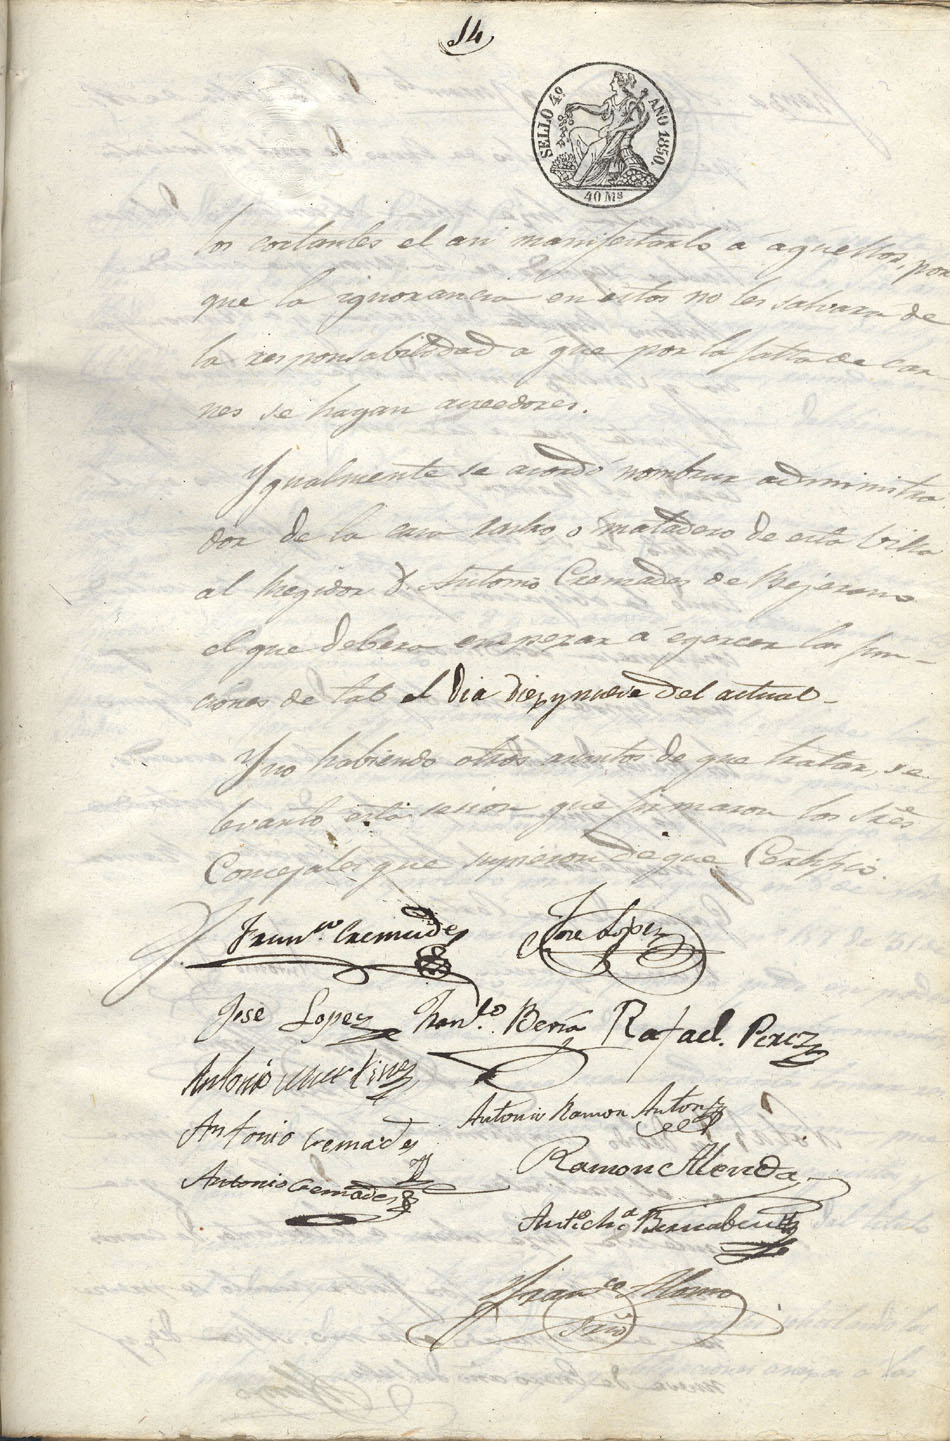 14
SELLO 4º AÑO 1850.
40 Ms
los cortantes el asi manifestarlo a aquellos, por
que la ignorancia en estos no les salvara de
la responsabilidad a que por la falta de car
nes se hagan acreedores.
Ygualmente se acordó nombrar administra
dor de la casa rastro, o matadero de esta Villa
al Regidor D. Antonio Cremades de Bejarano
el que debera empezar a egercer las fun-
ciones de tal el dia diez y nueve del actual-
Y no habiendo otros asuntos de que tratar, se
levantó esta sesion que firmaron los Sres
Concejales que supieron de que Certifico.
Franco Cremades José López
José Lopez Franco Beriá Rafael Perez
Antonio Martinez
Antonio Ramon Anton
Antonio Cremades
Ramon Alenda
Antonio Cremades
Bernabeu
Franco Alamo
Srio